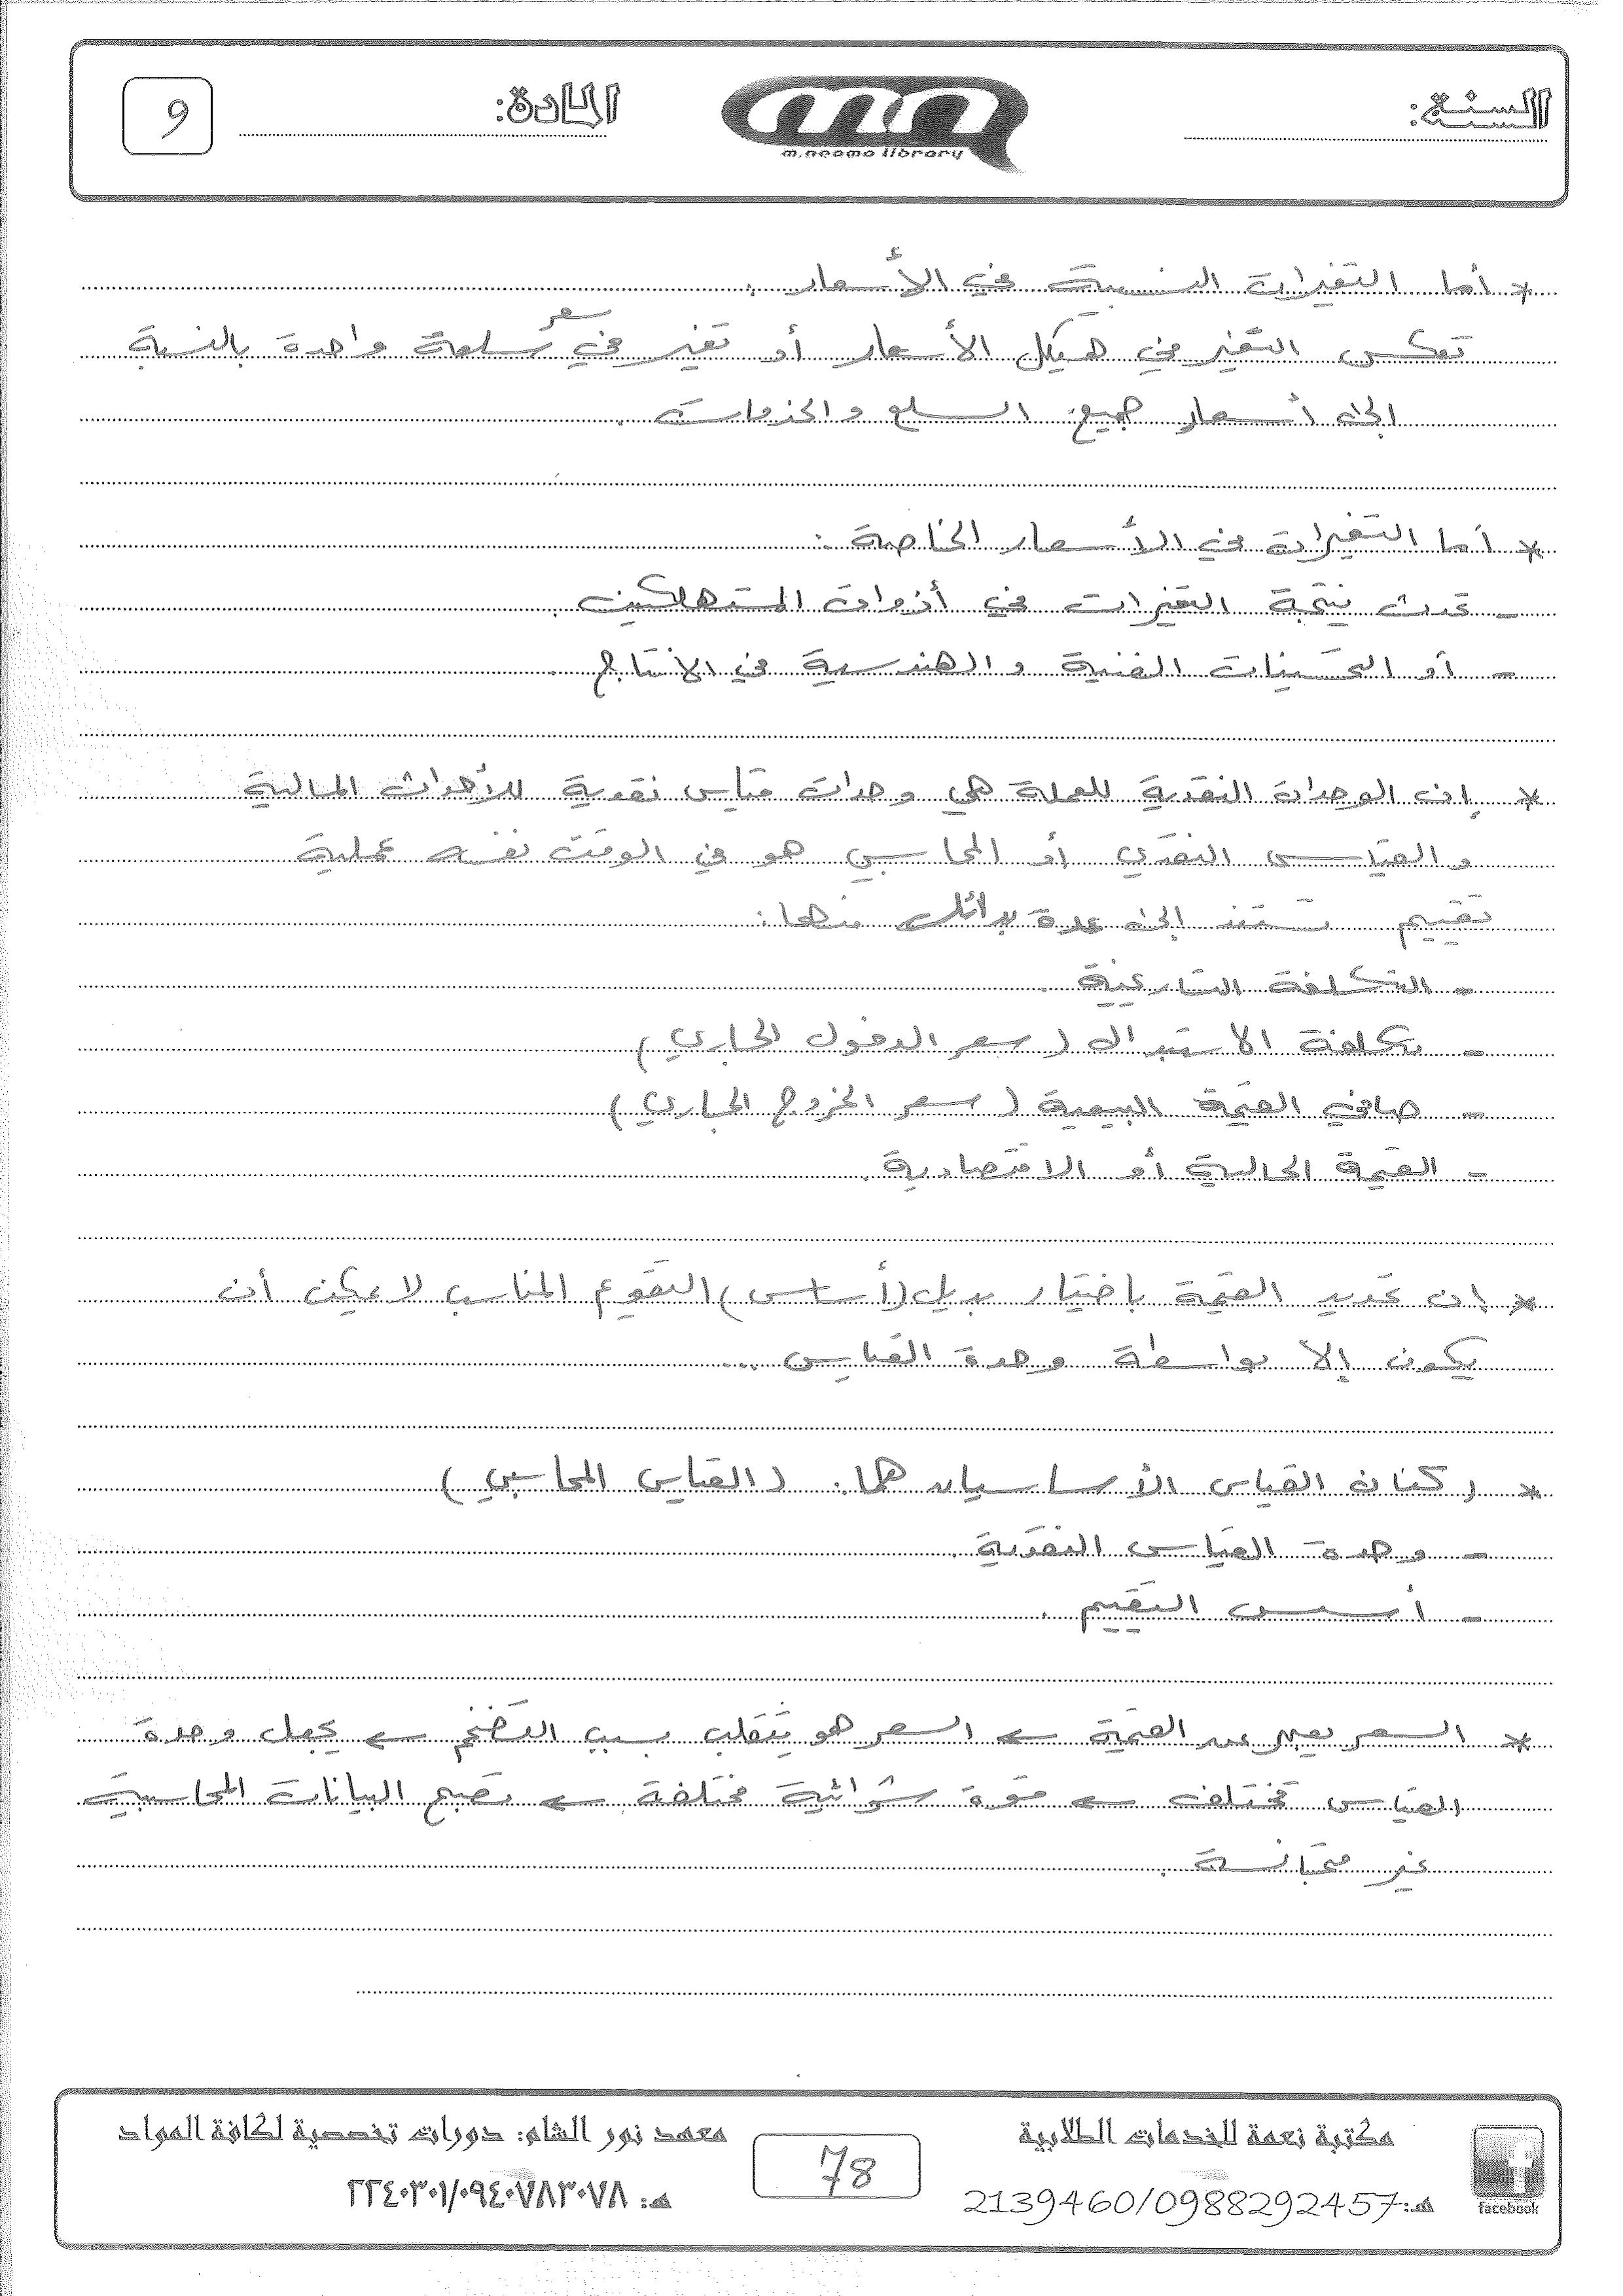 السنة:
m.neama library
المادة:
9
* أما التغيرات النسبية في الأسعار:
تعكس التغير في هيكل الأسعار أو تغير في سعر سلعة واحدة بالنسبة
إلى أسعار جميع السلع والخدمات.
* أما التغيرات في الأسعار الخاصة:
- تحدث نتيجة التغيرات في أذواق المستهلكين.
- أو التحسينات الفنية والهندسية في الانتاج.
* إن الوحدات النقدية للعملة هي وحدات قياس نقدية للأحداث المالية
والقياس النقدي أو المحاسبي هو في الوقت نفسه عملية
تقييم تستند إلى عدة بدائل منها:
- التكلفة التاريخية.
- تكلفة الاستبدال (سعر الدخول الجاري)
- صافي القيمة البيعية (سعر الخروج الجاري)
- القيمة الحالية أو الاقتصادية.
* إن تحديد القيمة باختيار بديل (أساس) التقويم المناسب لا يمكن أن
يكون إلا بواسطة وحدة القياس...
* ركنان القياس الأساسيان هما: (القياس المحاسبي)
- وحدة القياس النقدية.
- أسس التقييم.
* السعر يعبر عن القيمة ← السعر هو يتقلب بسبب التضخم ← يجعل وحدة
القياس تختلف ← قوة شرائية مختلفة ← تصبح البيانات المحاسبية
غير متجانسة.
مكتبة نعمة للخدمات الطلابية
هـ: 2139460/0988292457
facebook
78
معهد نور الشام: دورات تخصصية لكافة المواد
هـ: ٢٢٤٠٣٠١/٠٩٤٠٧٨٣٠٧٨